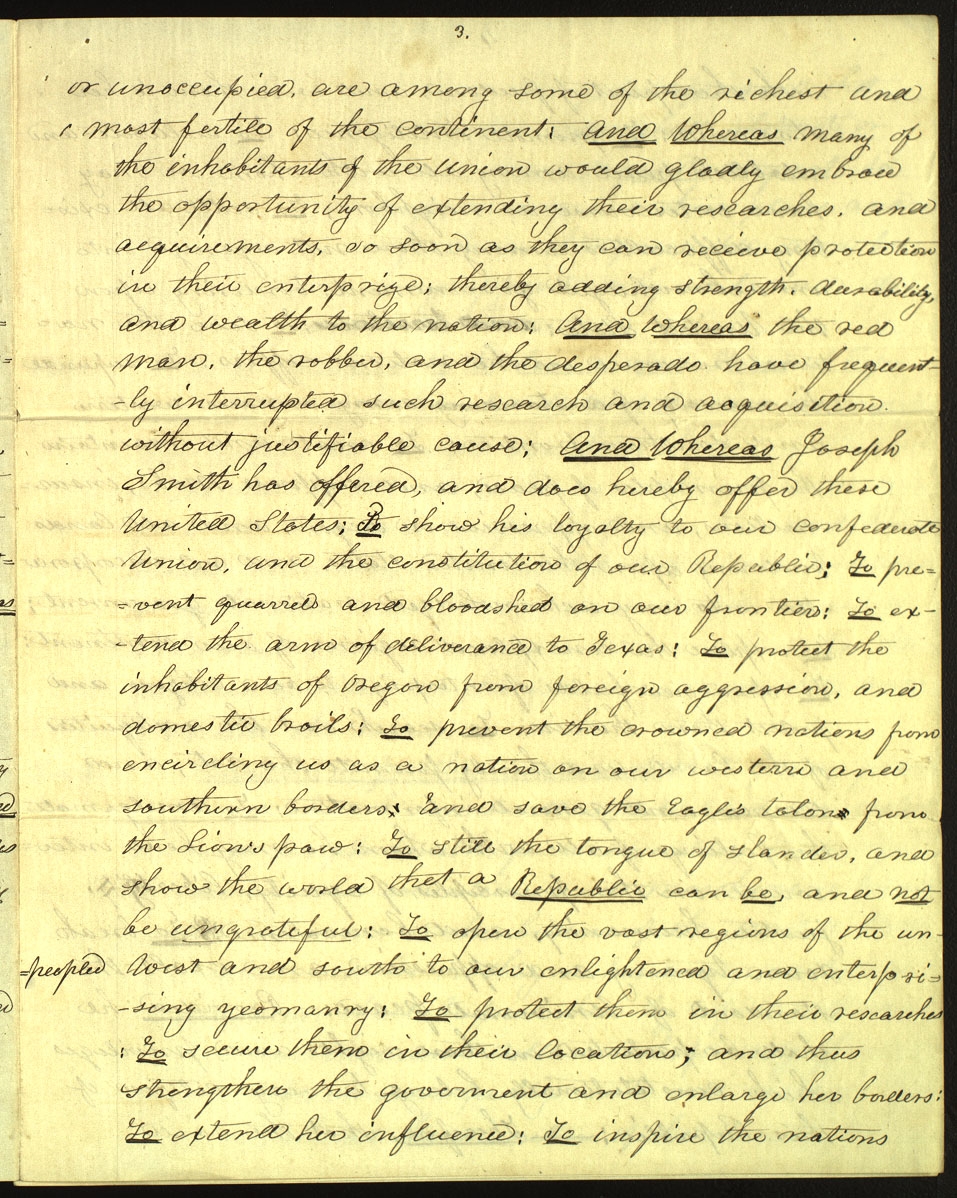 3.
or unoccupied, are among some of the richest and
most fertile of the continent; And Whereas many of
the inhabitants of the union would gladly embrace
the opportunity of extending their researches, and
acquirements, so soon as they can recieve protection
in their enterprize; thereby adding strength, durability,
and wealth to the nation; And Whereas the red
man, the robber, and the desperado have frequent-
-ly interrupted such research and acquisition
without justifiable cause; And Whereas Joseph
Smith has offered, and does hereby offer these
United States; To show his loyalty to our confederate
Union, and the constitution of our Republic; To pre=
=vent quarrels and bloodshed on our frontier; To ex-
-tend the arm of deliverance to Texas; To protect the
inhabitants of Oregon from foreign aggression, and
domestic broils; To prevent the crowned nations from
encircling us as a nation on our western and
southern borders, and save the Eagle's talons from
the Lion's paw; To still the tongue of slander, and
show the world that a Republic can be, and not
be ungrateful; To open the vast regions of the un-
=peopled West and south to our enlightened and enterpri=
-sing yeomanry; To protect them in their researches
; To secure them in their locations; and thus
strengthen the goverment and enlarge her borders:
To extend her influence; To inspire the nations